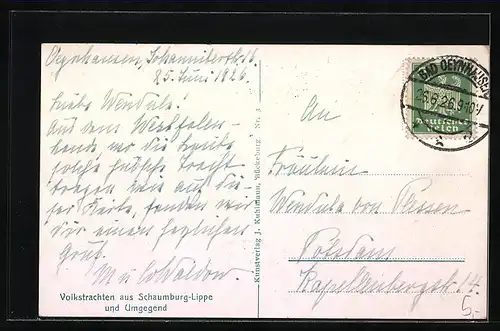 Oeynhausen, Johanniterstr. 16
25. Juni 1926.
Liebe Wendula!
Aus dem Westfalen-
lande, wo die Leute
solche hübsche Tracht
tragen wie auf die-
ser Karte, senden wir
Dir einen herzlichen
Gruß.
M u C Waldow.
Volkstrachten aus Schaumburg-Lippe
und Umgegend
Kunstverlag J. Kuhlmann, Bückeburg Nr. 3
BAD OEYNHAUSEN
Deutsches
Reich
An
Fräulein
Wendula von Plessen
Potsdam
Kapellenbergstr. 14.
5.-